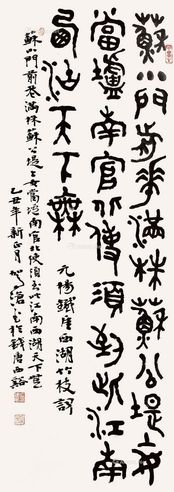 蘇小門前花滿株蘇公堤上女
當壚南官北使須到此江南
西湖天下無
元楊鐵崖西湖竹枝詞
蘇小門前花滿株蘇公堤上女當壚南官北使須到此江南西湖天下無
乙丑年新正月滄於錢唐西谿